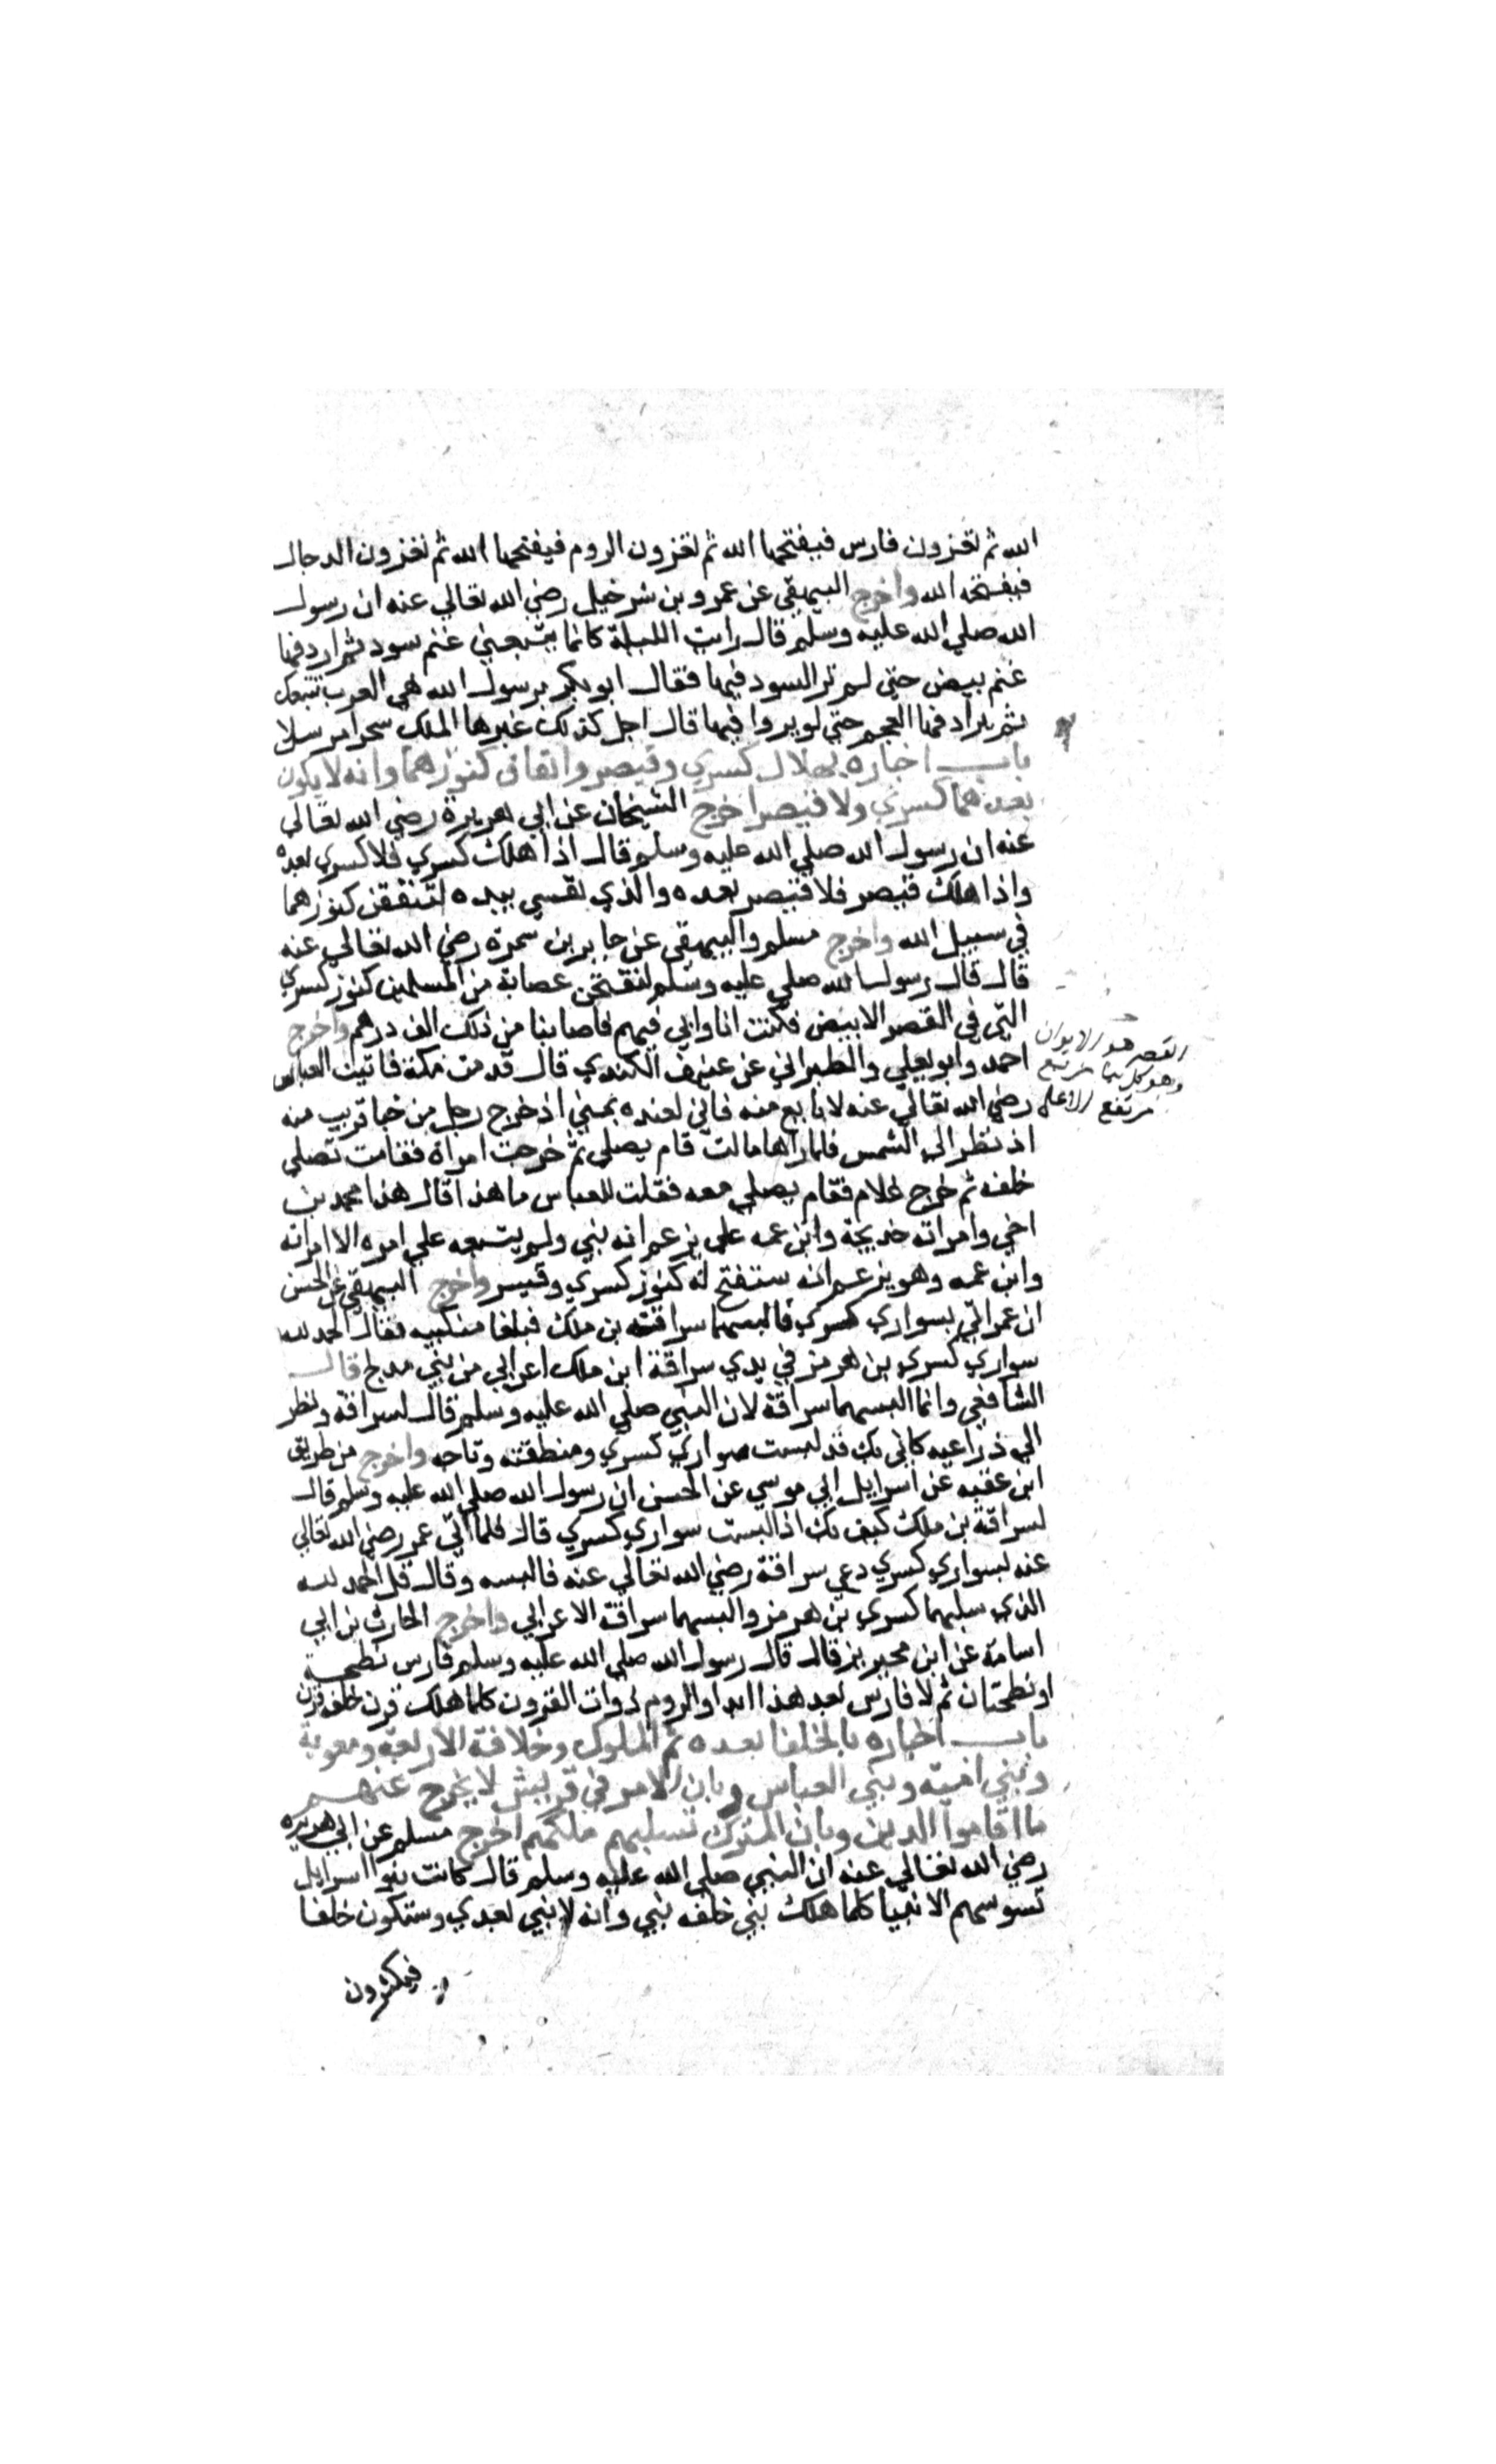 الله ثم تغزون فارس فيفتحها الله ثم تغزون الروم فيفتحها الله ثم تغزون الدجال
فيفتحه الله واخرج البيهقي عن عمرو بن شرحبيل رضي الله تعالي عنه ان رسول
الله صلي الله عليه وسلم قال رايت الليلة كانما يتبعني غنم سود ثم اردفها
غنم بيض حتي لم تر السود فيها فقال ابو بكر يرسول الله هي العرب تتبعك
ثم تردفها العجم حتي لم يروا فيها قال اجل كذلك عبرها الملك سحرا مرسلا
باب اخباره بهلاك كسري وقيصر وانفاق كنوزهما وانه لا يكون
بعدهما كسري ولا قيصر اخرج الشيخان عن ابي هريرة رضي الله تعالي
عنه ان رسول الله صلي الله عليه وسلم قال اذا هلك كسري فلا كسري بعده
واذا هلك قيصر فلا قيصر بعده والذي نفسي بيده لتنفقن كنوزهما
في سبيل الله واخرج مسلم والبيهقي عن جابر بن سمرة رضي الله تعالي عنه
قال قال رسول الله صلي عليه وسلم لتفتحن عصابة من المسلمين كنوز كسري
التي في القصر الابيض فكنت انا وابي فيهم فاصابنا من ذلك الف درهم واخرج
القصر هو الايوان
وهو كل بنا مرتفع
مرتفع الاعلي
احمد وابو يعلي والطبراني عن عفيف الكندي قال قدمت مكة فاتيت العباس
رضي الله تعالي عنه لابايع منه فاني لعنده بمني اذ خرج رجل من خبا قريب منه
اذ نظر الي الشمس فلما راها مالت قام يصلي ثم خرجت امراة فقامت تصلي
خلفه ثم خرج غلام فقام يصلي معه فقلت للعباس ما هذا قال هذا محمد بن
اخي وامراته خديجة وابن عمه علي يزعم انه نبي ولم يتبعه علي امره الا امراته
وابن عمه وهو يزعم انه ستفتح له كنوز كسري وقيسر واخرج البيهقي عن الحسن
ان عمر اتي بسواري كسري فالبسهما سراقة بن ملك فبلغا منكبيه فقال الحمد لله
سواري كسري بن هرمز في يدي سراقة ابن ملك اعرابي من بني مدلج قال
الشافعي وانما البسهما سراقة لان النبي صلي الله عليه وسلم قال لسراقة ونظر
الي ذراعيه كاني بك قد لبست سواري كسري ومنطقته وتاجه واخرج من طريق
ابن عقبه عن اسرايل ابي موسي عن الحسن ان رسول الله صلي الله عليه وسلم قال
لسراقة بن ملك كيف بك اذا لبست سواري كسري قال فلما اتي عمر رضي الله تعالي
عنه بسواري كسري دعي سراقة رضي الله تعالي عنه فالبسه وقال قل الحمد لله
الذي سلبهما كسري بن هرمز والبسهما سراقة الاعرابي واخرج الحارث بن ابي
اسامة عن ابن محيريز قال قال رسول الله صلي الله عليه وسلم فارس نطحة
او نطحتان ثم لا فارس بعد هذا ابدا والروم ذوات القرون كلما هلك قرن خلفه قرن
باب اخباره بالخلفا بعده ثم الملوك وخلافة الاربعة ومعوية
وبني امية وبني العباس وبان الامر في قريش لا يخرج عنهم
ما اقاموا الدين وبان الترك تسلبهم ملكهم اخرج مسلم عن ابي هريره
رضي الله تعالي عنه ان النبي صلي الله عليه وسلم قال كانت بنوا اسرايل
تسوسهم الانبيا كلما هلك نبي خلفه نبي وانه لا نبي بعدي وستكون خلفا
فيكثرون